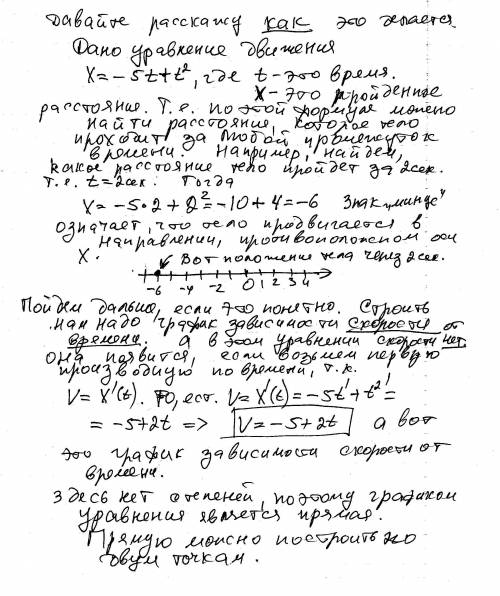 Давайте расскажу как это делается.
Дано уравнение движения
X = -5t + t², где t - это время.
X - это пройденное
расстояние. Т.е. по этой формуле можно
найти расстояние, которое тело
проходит за любой промежуток
времени. Например, найдем,
какое расстояние тело пройдет за 2 сек.
Т.е. t = 2 сек. Тогда
X = -5·2 + 2² = -10 + 4 = -6 Знак „минус"
означает, что тело продвигается в
направлении, противоположном оси
X.
Вот положение тела через 2 сек.
-6 -4 -2 0 1 2 3 4
Пойдем дальше, если это понятно. Строить
нам надо график зависимости скорости от
времени. А в этом уравнении скорости нет.
Она появится, если возьмем первую
производную по времени, т.к.
V = X'(t). То, ест. V = X'(t) = -5t' + t²' =
= -5 + 2t => V = -5 + 2t а вот
это график зависимости скорости от
времени.
Здесь нет степеней, поэтому графиком
уравнения является прямая.
Прямую можно построить по
двум точкам.